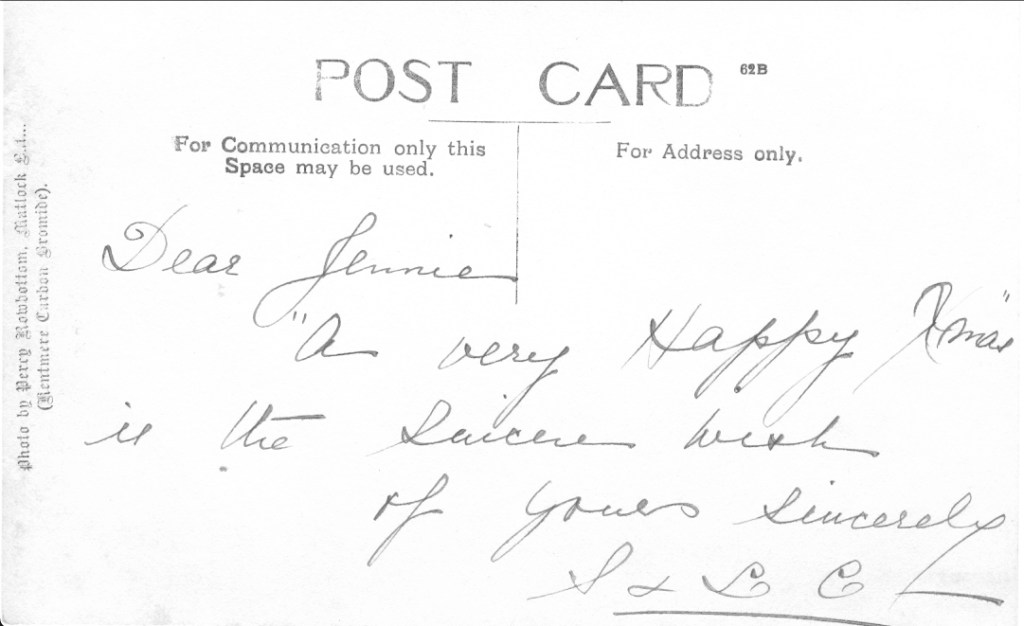 POST CARD 62B
For Communication only this
Space may be used.
For Address only.
Dear Jennie
"A very Happy Xmas"
is the Sincere Wish
of Yours Sincerely
S & L C
Photo by Percy Rowbottom, Matlock
(Kentmere Carbon Bromide).